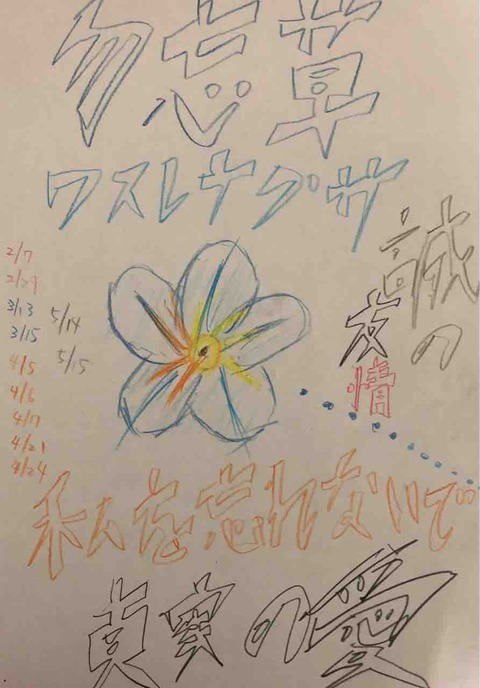 勿忘草
ワスレナグサ
誠の
友情
2/7
2/29
3/13
3/15
4/5
4/6
4/17
4/21
4/24
5/14
5/15
私を忘れないで
真実の愛